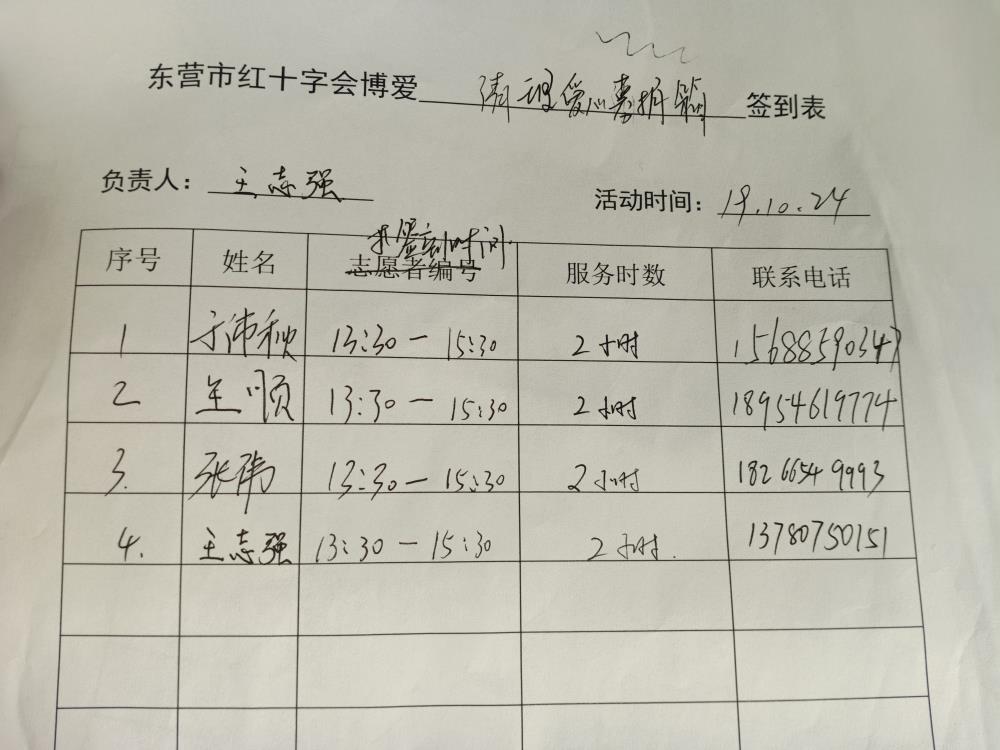 东营市红十字会博爱 清理爱心募捐箱 签到表
负责人： 王志强 活动时间： 19.10.24
签到时间
序号 姓名 志愿者编号 服务时数 联系电话
1 13:30—15:30 2小时 15688590347
2 王顺 13:30—15:30 2小时 18954619774
3. 张伟 13:30—15:30 2小时 18266549993
4. 王志强 13:30—15:30 2小时. 13780750151